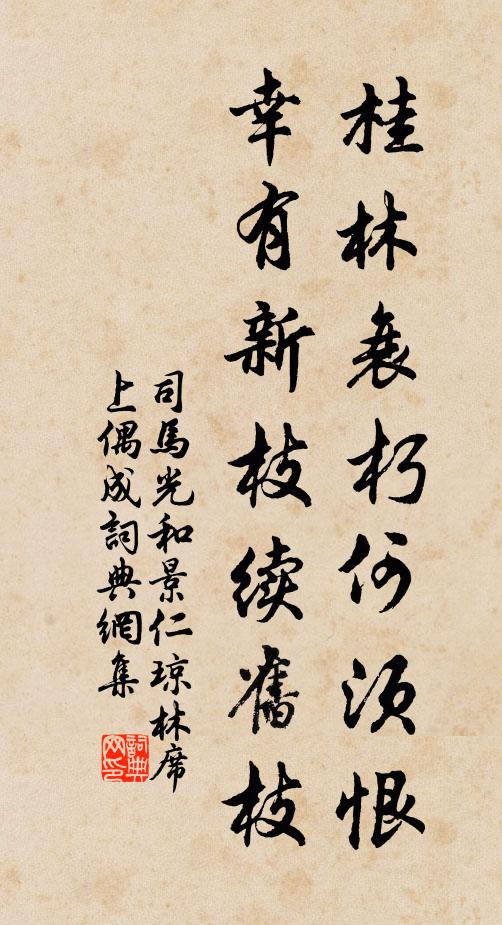 桂林衰朽何须恨
幸有新枝续舊枝
司馬光和景仁琼林席
上偶成詞典網集
詞典网印